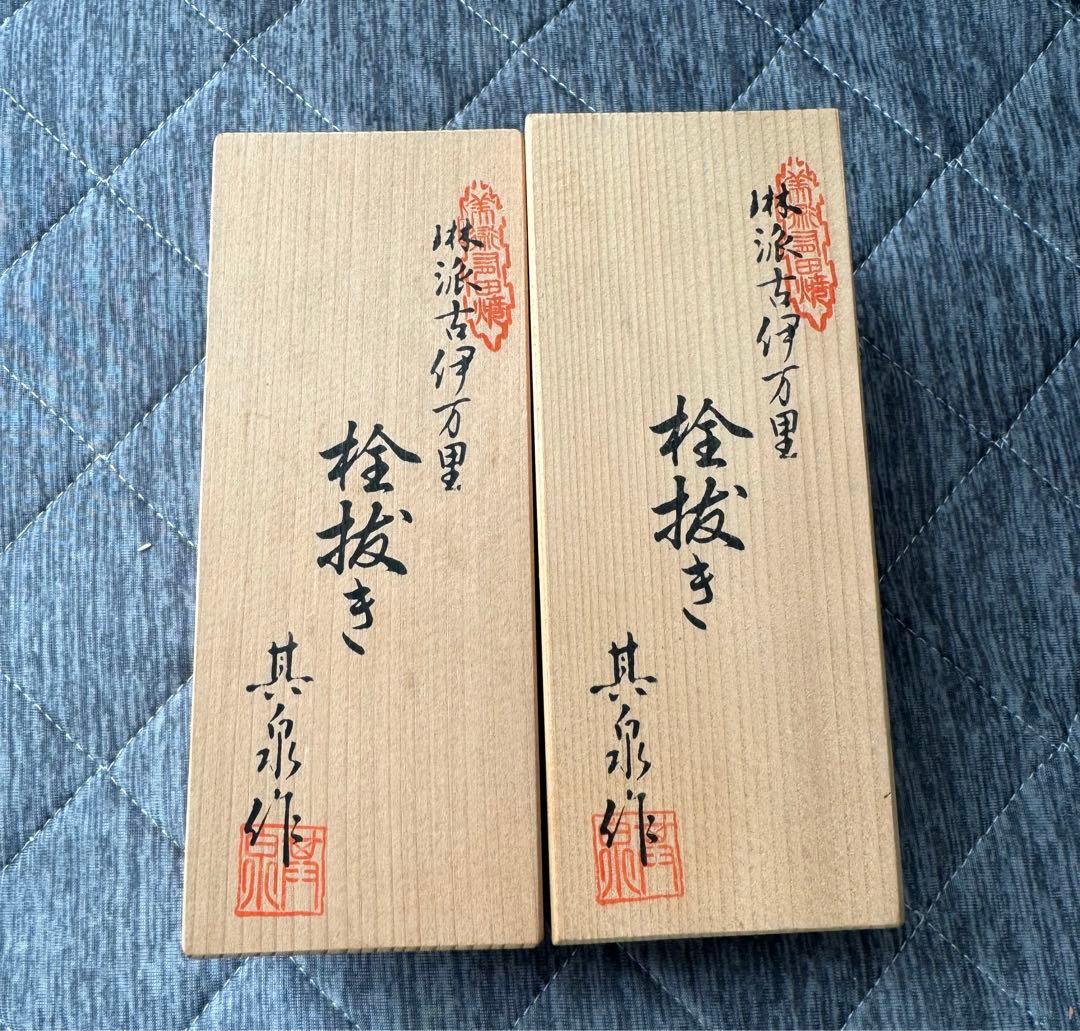 琳派古伊万里
栓抜き
其泉作
琳派古伊万里
栓抜き
其泉作